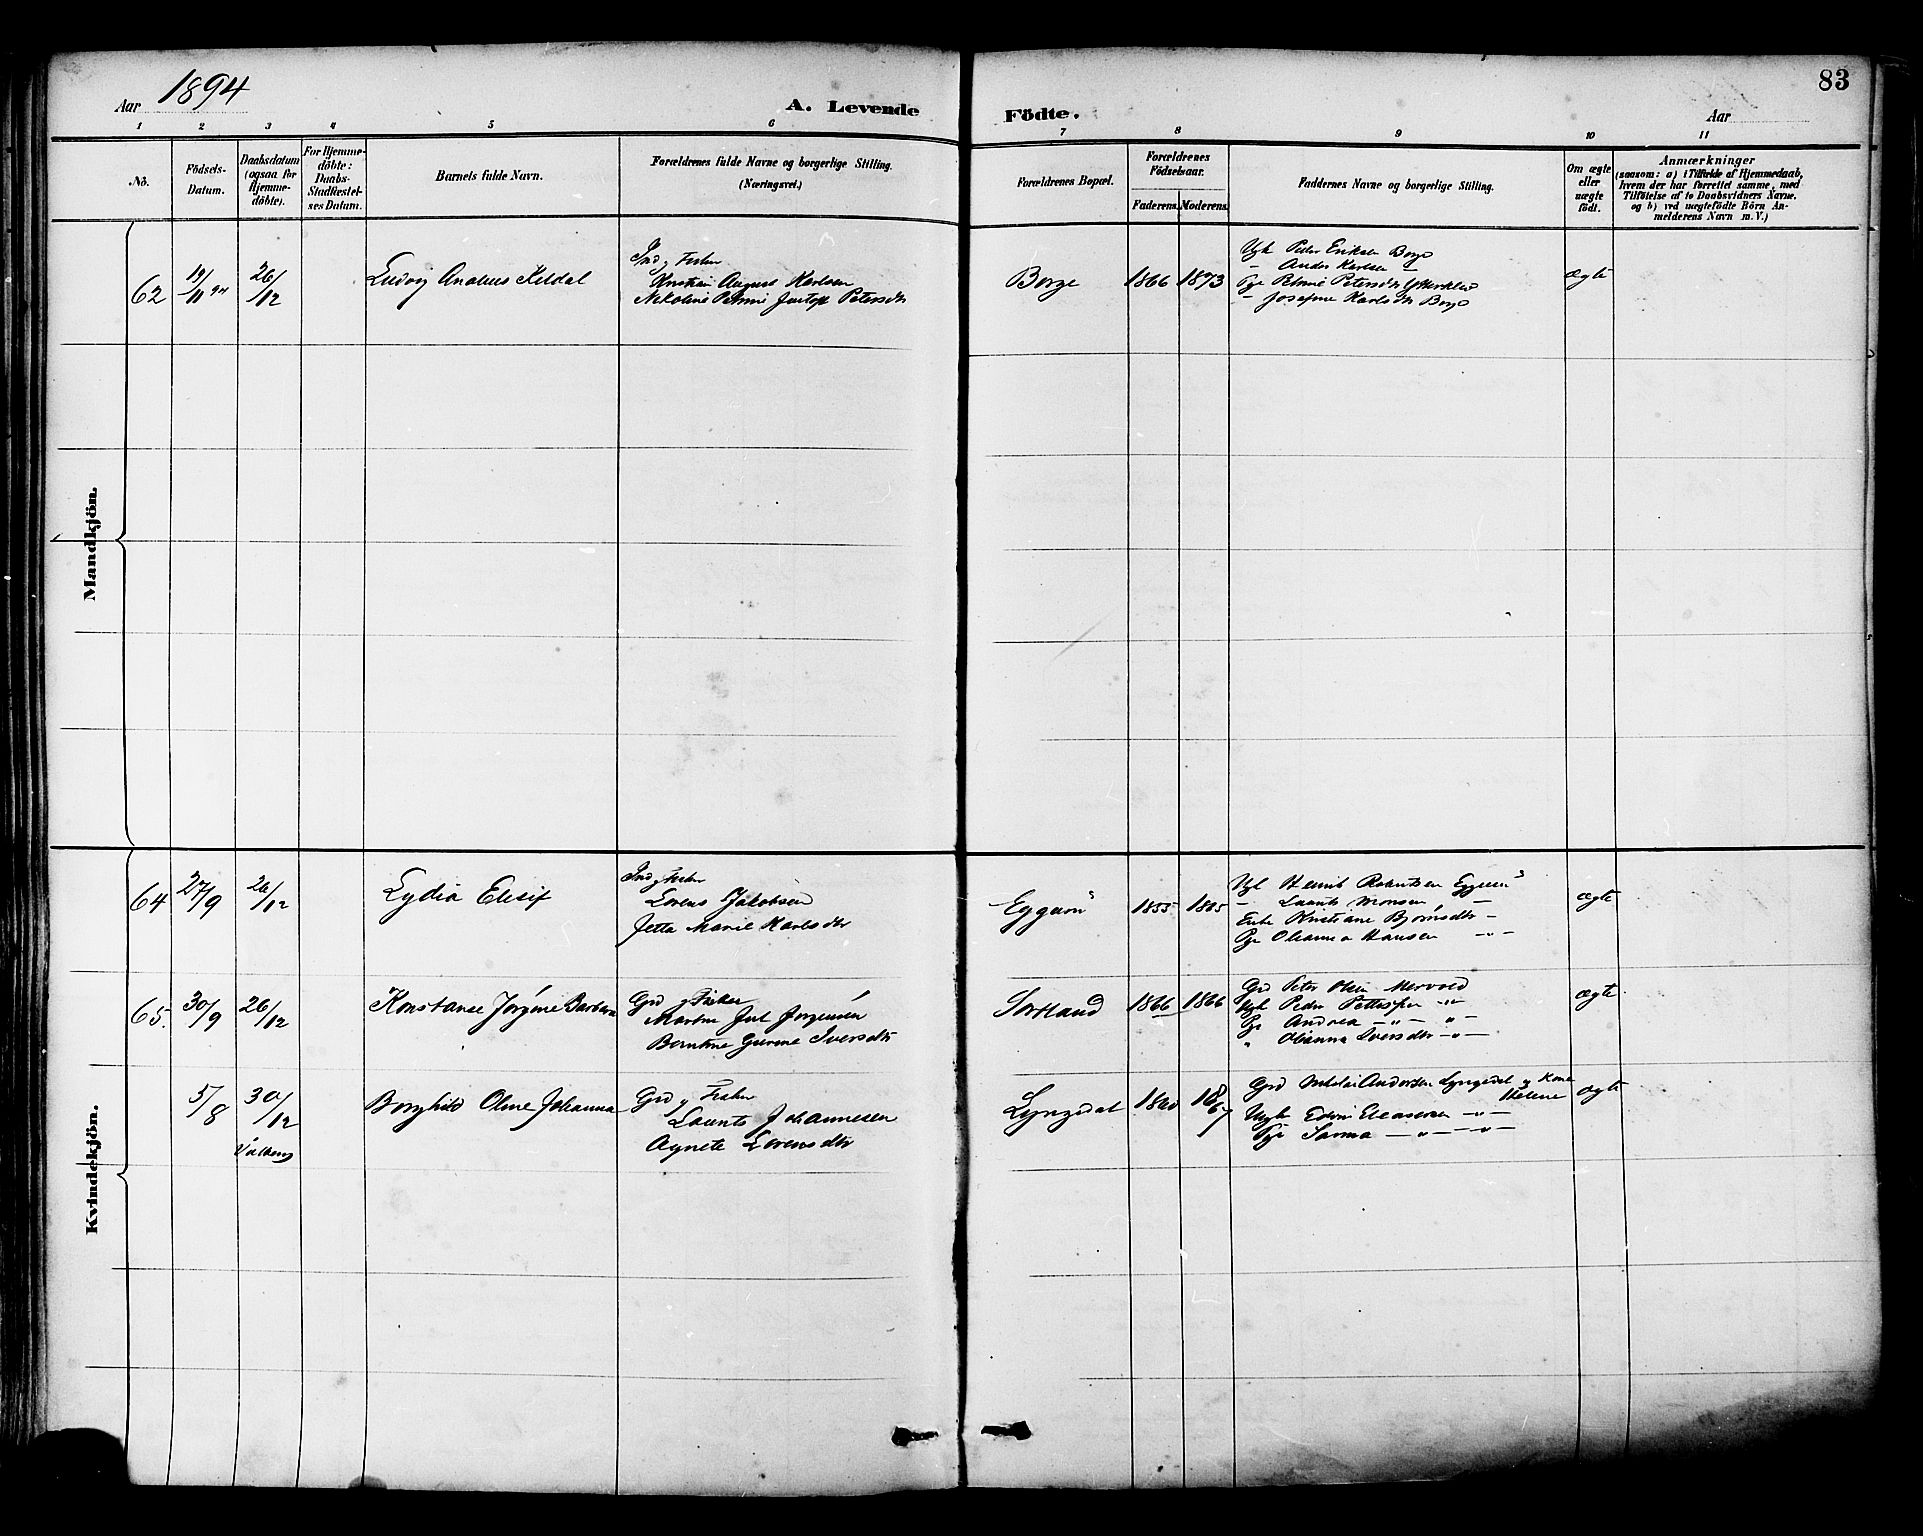 83
Aar 1894
A. Levende Födte.
Aar
1 2 3 4 5 6 7 8 9 10 11
No.
Födsels-
Datum.
Daabsdatum
(ogsaa for
Hjemme-
döbte).
For Hjemme-
döbte:
Daabs-
Stadfæstel-
ses Datum.
Barnets fulde Navn.
Forældrenes fulde Navne og borgerlige Stilling.
(Næringsvei.)
Forældrenes Bopæl.
Forældrenes
Födselsaar.
Faderens. Moderens.
Faddernes Navne og borgerlige Stilling.
Om ægte
eller
uægte
födt.
Anmærkninger
(saasom: a) i Tilfælde af Hjemmedaab,
hvem der har forrettet samme, med
Tilföielse af to Daabsvidners Navne,
og b) ved uægtefödte Börn An-
melderens Navn m. V.)
Mandkjön.
62
19/11 94
26/12
Ludvig Kildal
Ind y Fisker
Kristian August Karlsen
Nikoline Petersdtr
Borge
1866
1873
Ugk Peder Eriksen Borge
- Anders Karlsen -
Pge Petersdtr
- Josefine Karlsdtr Borge
ægte
Kvindekjön.
64
27/9
26/12
Lydia Elisif
Ind y Fisker
Lorens Jakobsen
Jetta Marie Karlsdtr
1855
Robertsen
- Monsen -
Enke Kristiane Bjørnsdtr -
Pge Hansen -"-
ægte
65.
30/9
26/12
Konstanse Jørgine Barbara
Grd y Fisker
Jørgensen
Iversdtr
Sortland
1866
1866
Grd Peter Olsen
Ugk Peder -"-
Pge Andrea -"- -"-
" Iversdtr -"-
ægte
5/8
30/12
Valberg
Borghild Oline Johanna
Grd y Fisker
Laurits Johannesen
Agnete Lorensdtr
Lyngedal
1867
Grd Nikolai Andersen Lyngedal y Kone
Helene
Ugk Edvin Eleasersen -"-
Pge -"- -"-
ægte